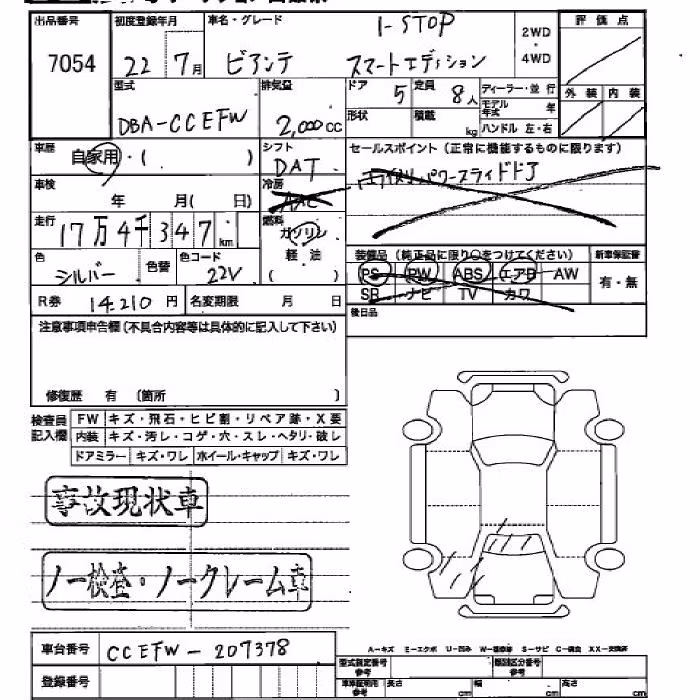 出品番号 初度登録年月 車名・グレード I-STOP 2WD・4WD 評価点
7054 22 7月 ビアンテ スマートエディション
型式 排気量 ドア 5 定員 8人 ディーラー・並行 外装 内装
DBA-CCEFW 2,000cc 形状 積載 kg モデル年式 年
ハンドル 左・右
車歴 自家用・( ) シフト DAT セールスポイント(正常に機能するものに限ります)
車検 年 月( 日) 冷房 AAC パワースライドドア
走行 17万4千347km 燃料 ガソリン
軽油
( )
色 シルバー 色替 色コード 22V
装備品(純正品に限り○をつけてください) 新車保証書
PS PW ABS エアB AW 有・無
SR ナビ TV カワ
R券 14.210円 名変期限 月 日 後日品
注意事項申告欄(不具合内容等は具体的に記入して下さい)
修復歴 有 (箇所 )
検査員記入欄 FW キズ・飛石・ヒビ割・リペア跡・X要
内装 キズ・汚レ・コゲ・穴・スレ・ヘタリ・破レ
ドアミラー キズ・ワレ ホイール・キャップ キズ・ワレ
事故現状車
ノー検査・ノークレーム車
車台番号 CCEFW-207378
A-キズ E-エクボ U-凹み W-補修跡 S-サビ C-腐食 XX-交換済
登録番号 型式指定番号参考 類別区分番号参考
車車証明用参考 長さ cm 幅 cm 高さ cm